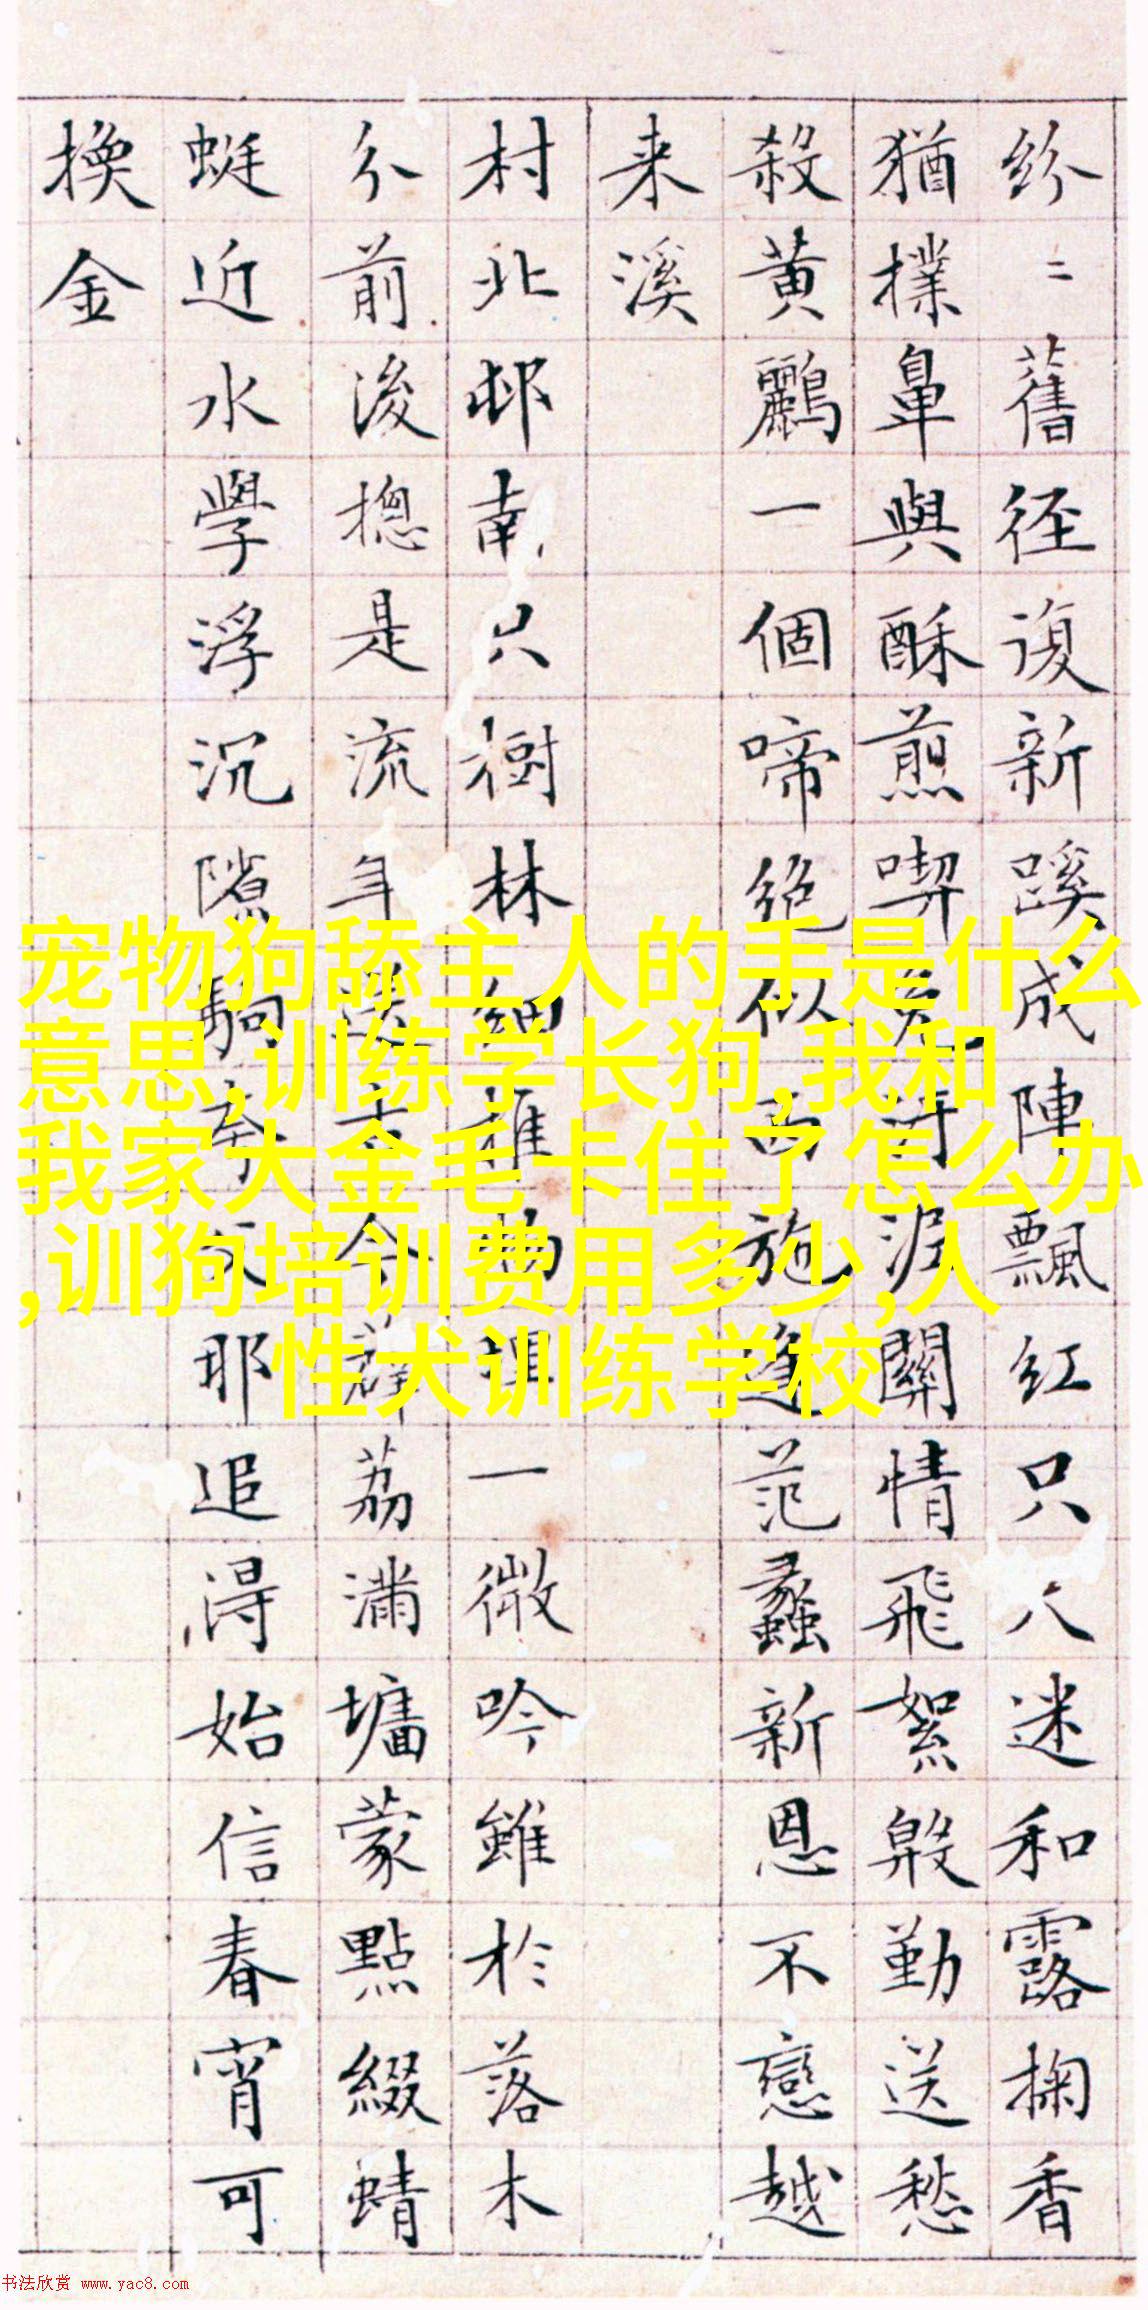 紛〻舊径復新蹊成陣飄紅只人迷和露掬香
猶撲鼻與酥煎喫免污泥關情飛絮殷勤送愁
殺黃鸝一個啼絶似西施逢范蠡新恩不戀越
来溪
村北邨南只樹林細推物理一微吟雖於落木
分前後摠是流年送古今群荔滿墉蒙點綴蜻
蜓近水學浮沉隙駒奔耶追得始信春宵可
換金
宠物狗舔主人的手是什么
意思,训练学长狗,我和
我家大金毛卡住了怎么办
,训狗培训费用多少,人
性犬训练学校
书法欣赏 www.yac8.com